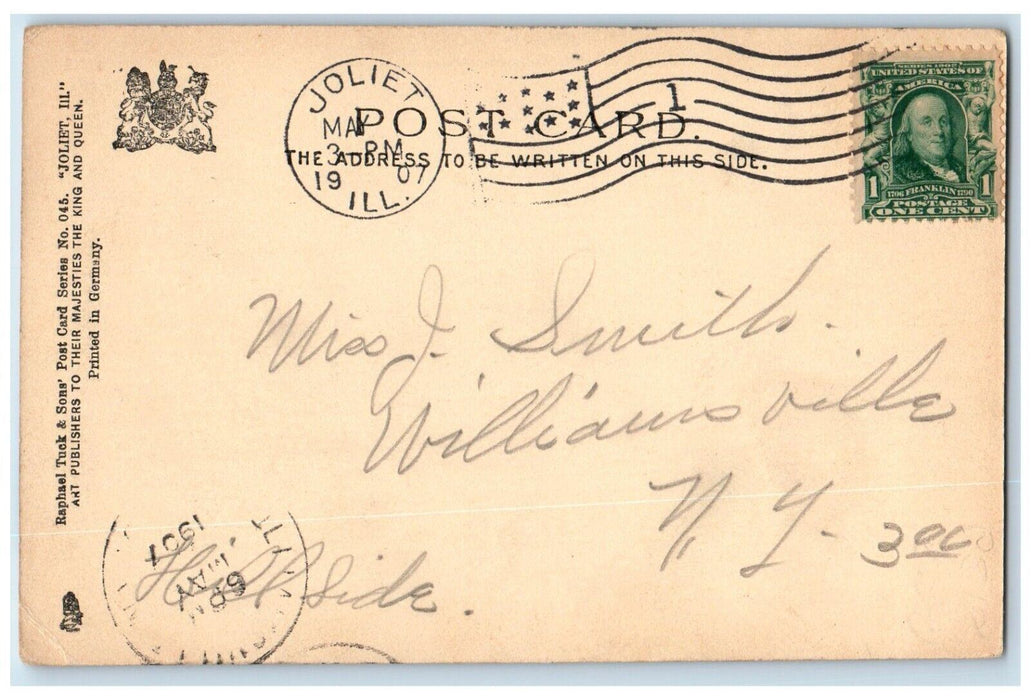 Raphael Tuck & Sons' Post Card Series No. 045. "JOLIET, Ill."
ART PUBLISHERS TO THEIR MAJESTIES THE KING AND QUEEN.
Printed in Germany.
JOLIET
3-PM
19 07
ILL.
1
POST CARD.
THE ADDRESS TO BE WRITTEN ON THIS SIDE.
SERIES 1902
UNITED STATES OF
AMERICA
1 1706 FRANKLIN 1790 1
POSTAGE
ONE CENT
Miss J. Smith.
Williamsville
N.Y.
3.00
Hillside.
1907